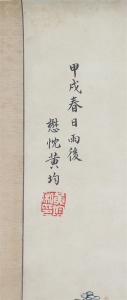 甲戌春日雨後
懋忱黄均